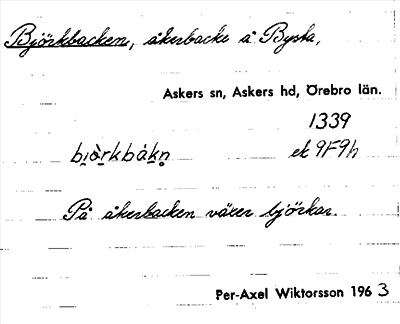 Björkbacken, åkerbacke å Bysta,
Askers sn, Askers hd, Örebro län.
1339
bi̯ö̀rkbákn̥ ek 9F9h
På åkerbacken växer björkar.
Per-Axel Wiktorsson 1963